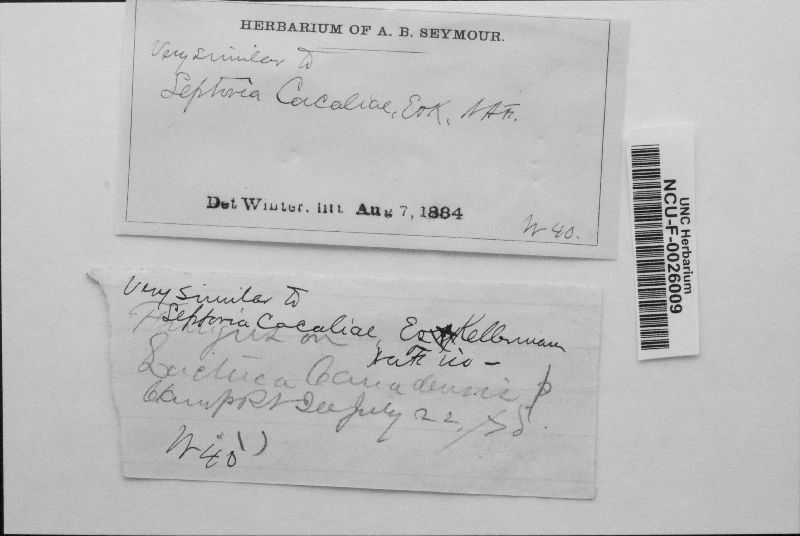 HERBARIUM OF A. B. SEYMOUR.
Very similar to
Septoria Cacaliae, E&K, N.A.F.
Det Winter. litt. Aug 7, 1884
W 40.
UNC Herbarium
NCU-F-0026009
Very similar to
Septoria Cacaliae, E & Kellerman
Fungus on
Lactuca Canadensis
Camp Pt Ill July 22
W 40